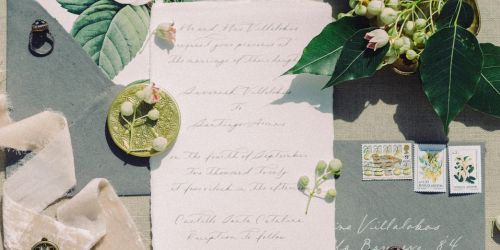 Mr and Mrs Villalobos
request your presence at
the marriage of their daughter
Savannah Villalobos
To
Santiago
on the fourth of September
Two Thousand Twenty
at four o'clock in the
Castillo Santa Catalina
Reception to follow
Villalobos
84